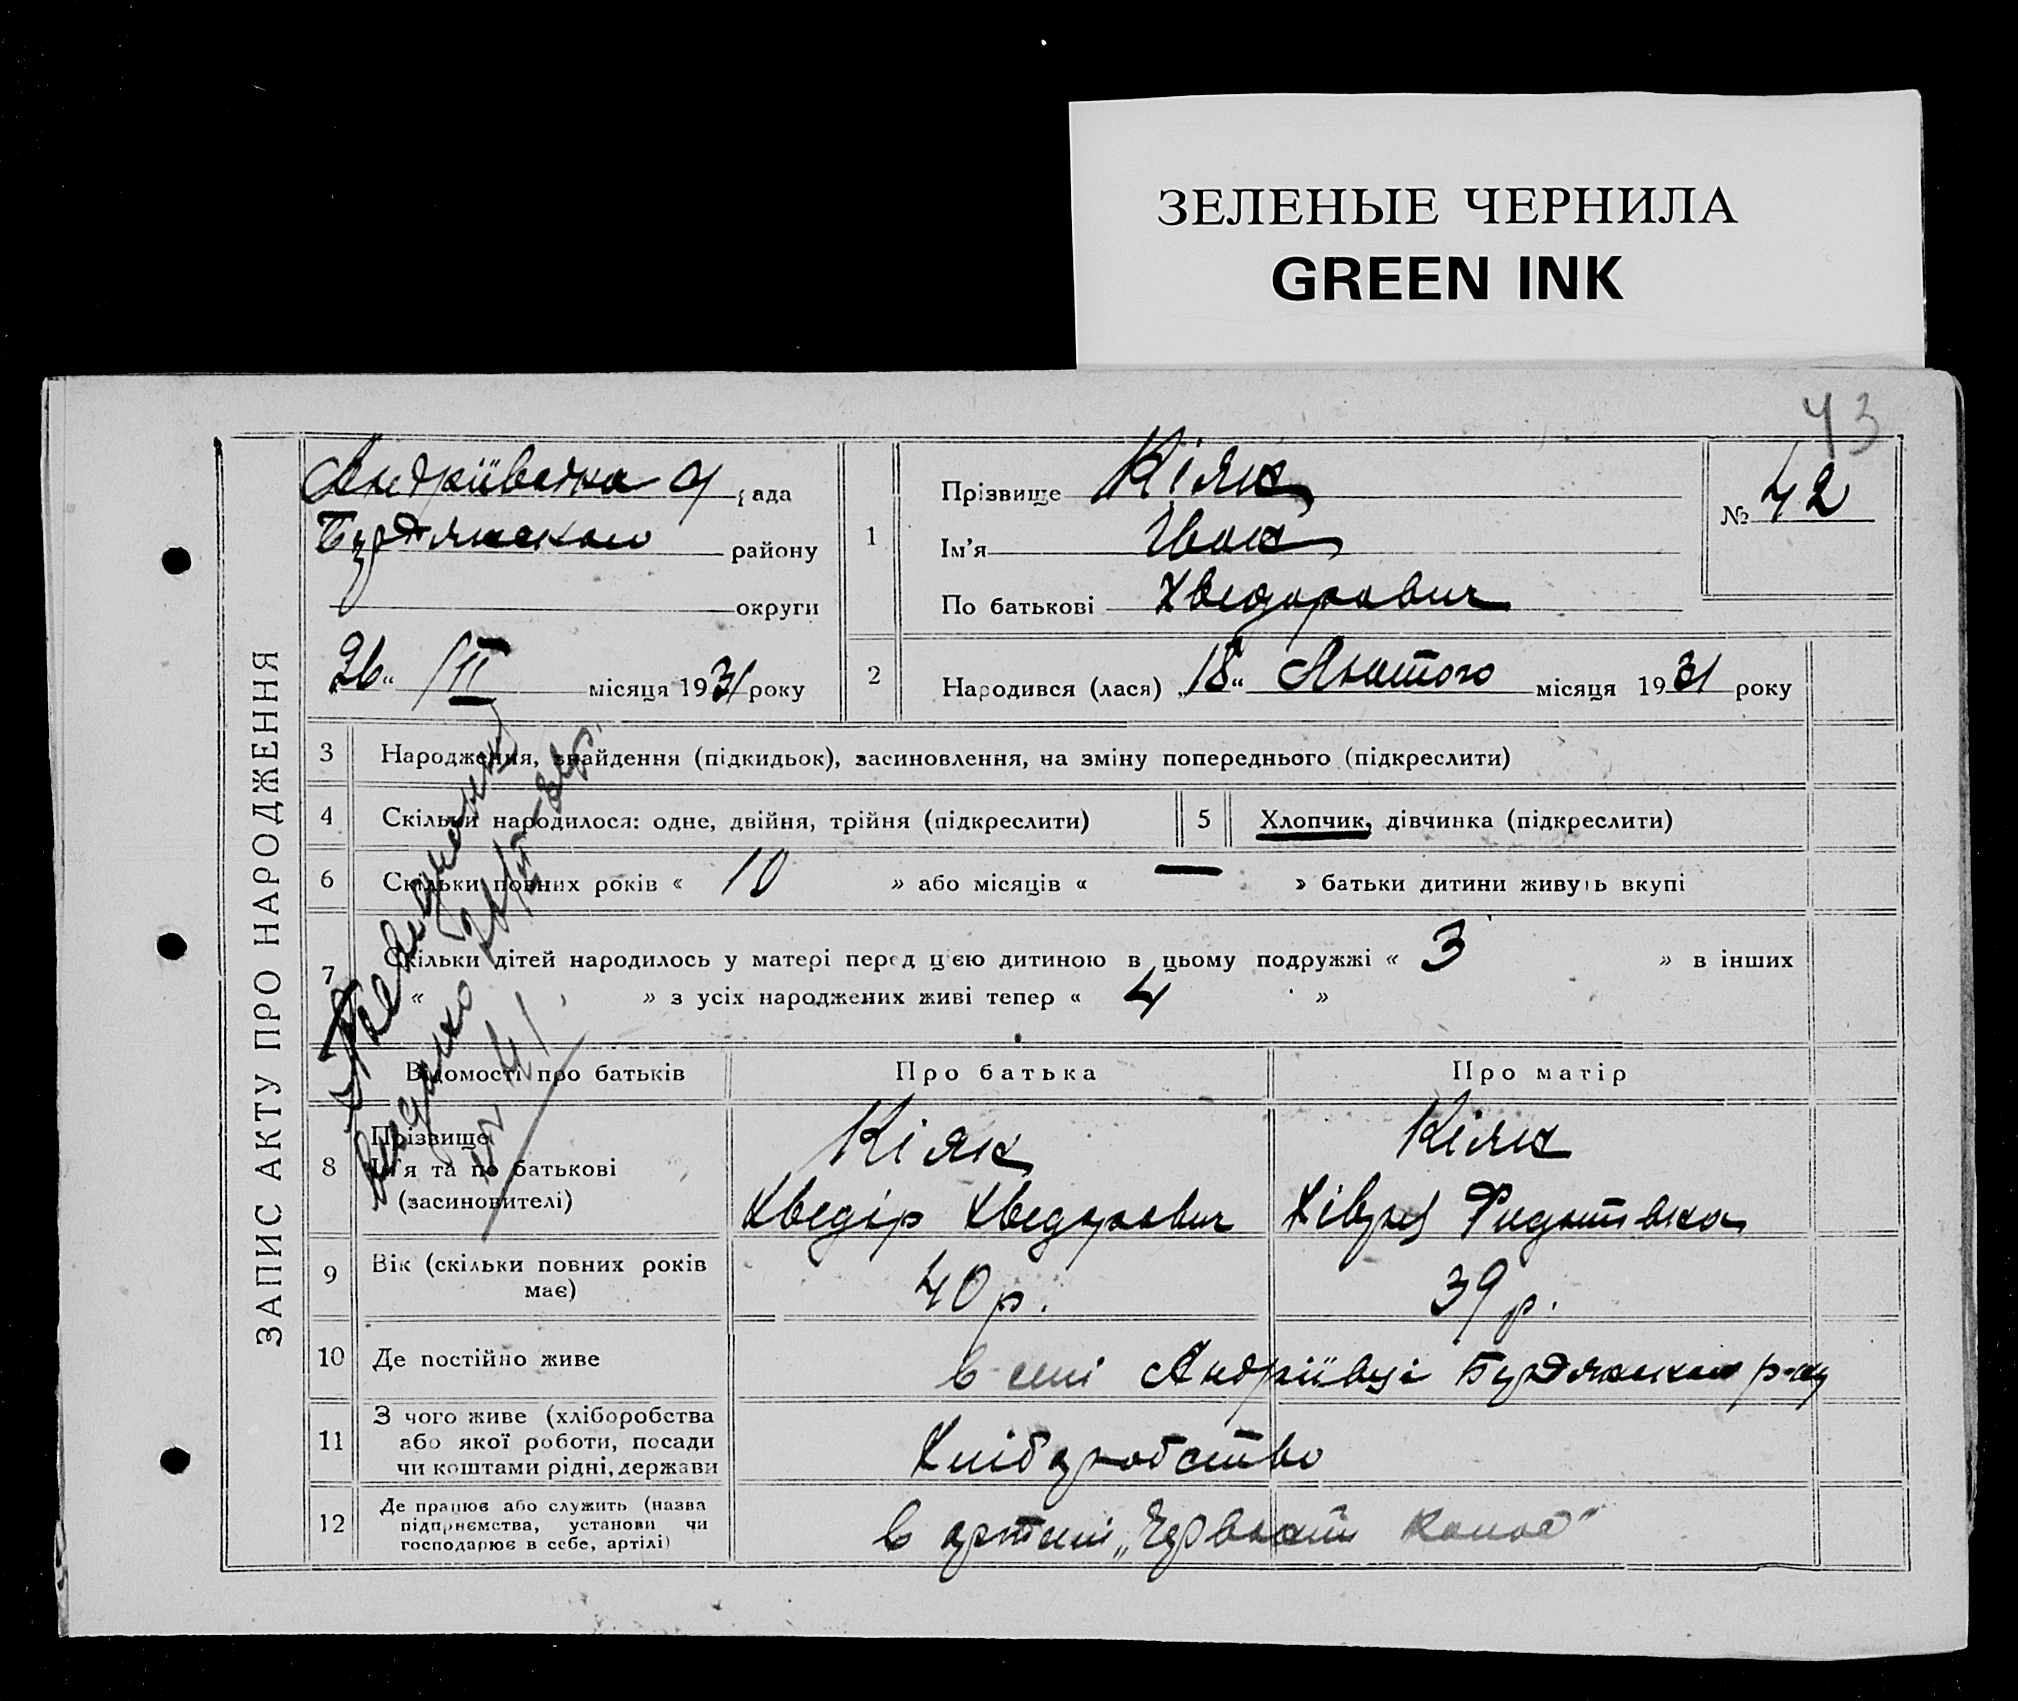 ЗЕЛЕНЫЕ ЧЕРНИЛА
GREEN INK
43
ЗАПИС АКТУ ПРО НАРОДЖЕННЯ
Андріївська с/ рада
Бердянського району
округи
26 " /II місяця 1931 року
1
Прізвище Кіяк
Ім'я Іван
По батькові Хведорович
№ 42
2 Народився (лася) „ 18 " Лютого місяця 1931 року
3 Народження, знайдення (підкидьок), засиновлення, на зміну попереднього (підкреслити)
4 Скільки народилося: одне, двійня, трійня (підкреслити)
5 Хлопчик, дівчинка (підкреслити)
6 Скільки повних років « 10 » або місяців « — » батьки дитини живуть вкупі
7 Скільки дітей народилось у матері перед цією дитиною в цьому подружжі « 3 » в інших
« » з усіх народжених живі тепер « 4 »
Відомості про батьків
Про батька
Про матір
8 Прізвище
Ім'я та по батькові
(засиновителі)
Кіяк
Хведір Хведорович
Кіяк
Хівря Федотівна
9 Вік (скільки повних років
має)
40 р.
39 р.
10 Де постійно живе
в селі Андріївці Бердянського р-ну
11 З чого живе (хліборобства
або якої роботи, посади
чи коштами рідні, держави
Хліборобство
12 Де працює або служить (назва
підприємства, установи чи
господарює в себе, артілі)
в артілі „